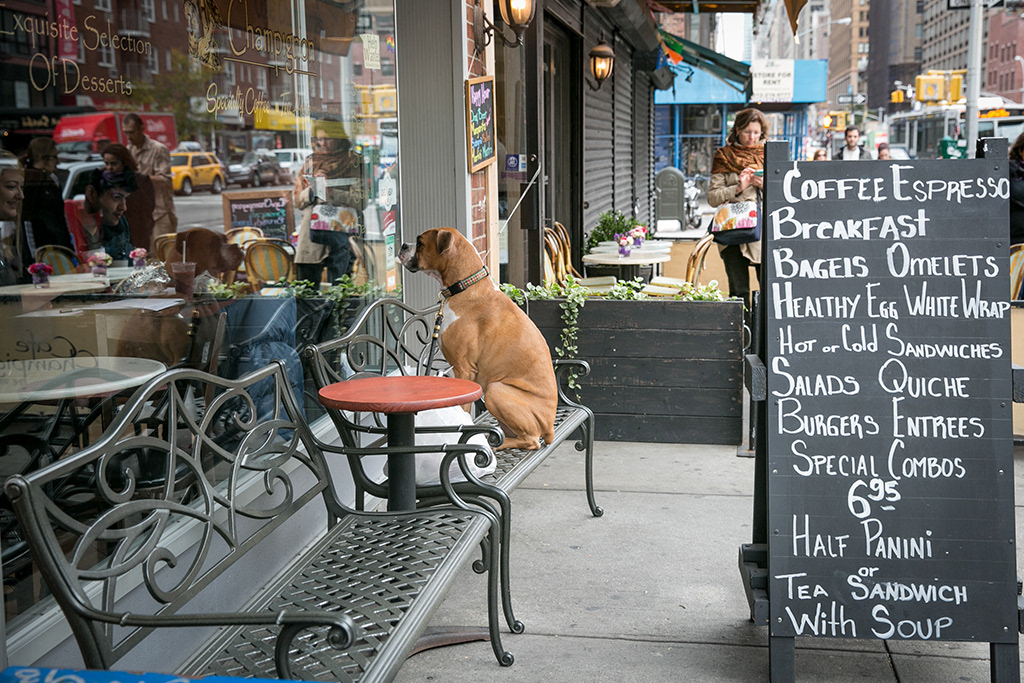 Exquisite Selection
Of Desserts
Champignon
Specialty Coffee
STORE FOR
RENT
COFFEE ESPRESSO
BREAKFAST
BAGELS OMELETS
HEALTHY EGG WHITE WRAP
HOT or COLD SANDWICHES
SALADS QUICHE
BURGERS ENTREES
SPECIAL COMBOS
6.95
HALF PANINI
or
TEA SANDWICH
WITH SOUP